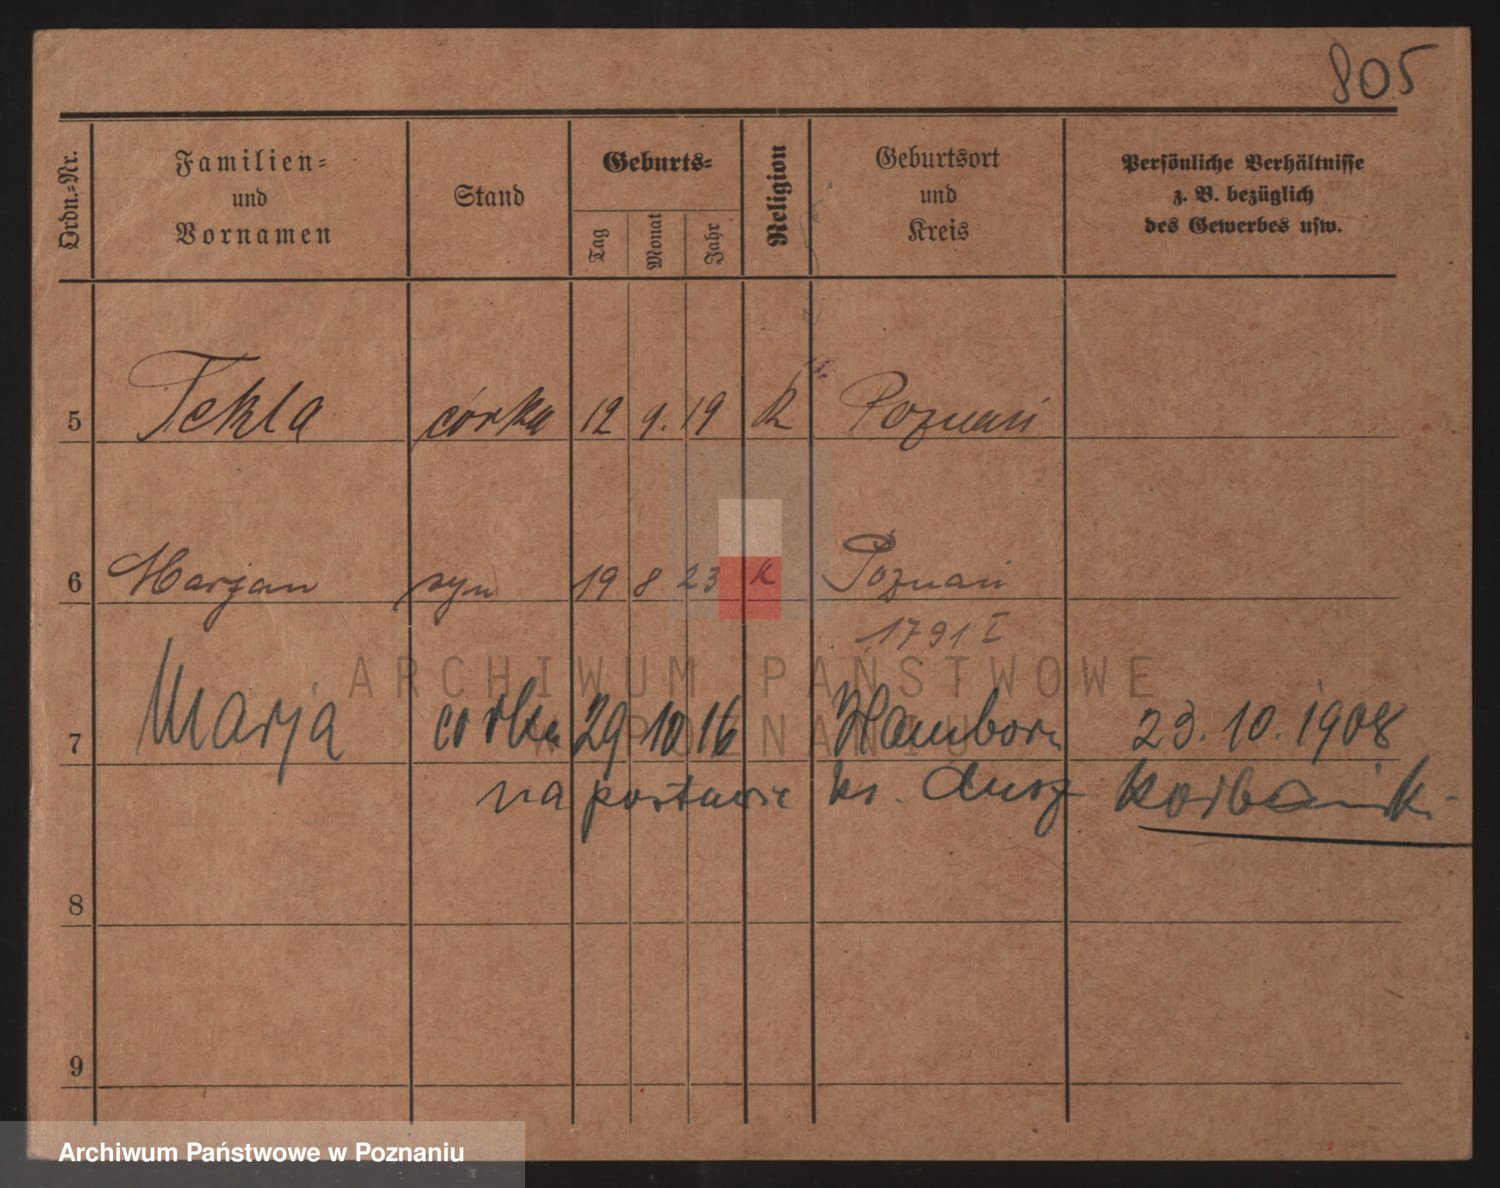 805
Ordn.-Nr.
Familien-
und
Vornamen
Stand
Geburts-
Tag
Monat
Jahr
Religion
Geburtsort
und
Kreis
Persönliche Verhältnisse
z. B. bezüglich
des Gewerbes usw.
5 Tekla córka 12 9. 19 K Poznań
6 Marjan syn 19 8 23 K Poznań
1791 I
7 Marja corka 29 10 16 Hamborn 23.10.1908
na postawie ks. dusz
8
9
ARCHIWUM PAŃSTWOWE
W POZNANIU
Archiwum Państwowe w Poznaniu